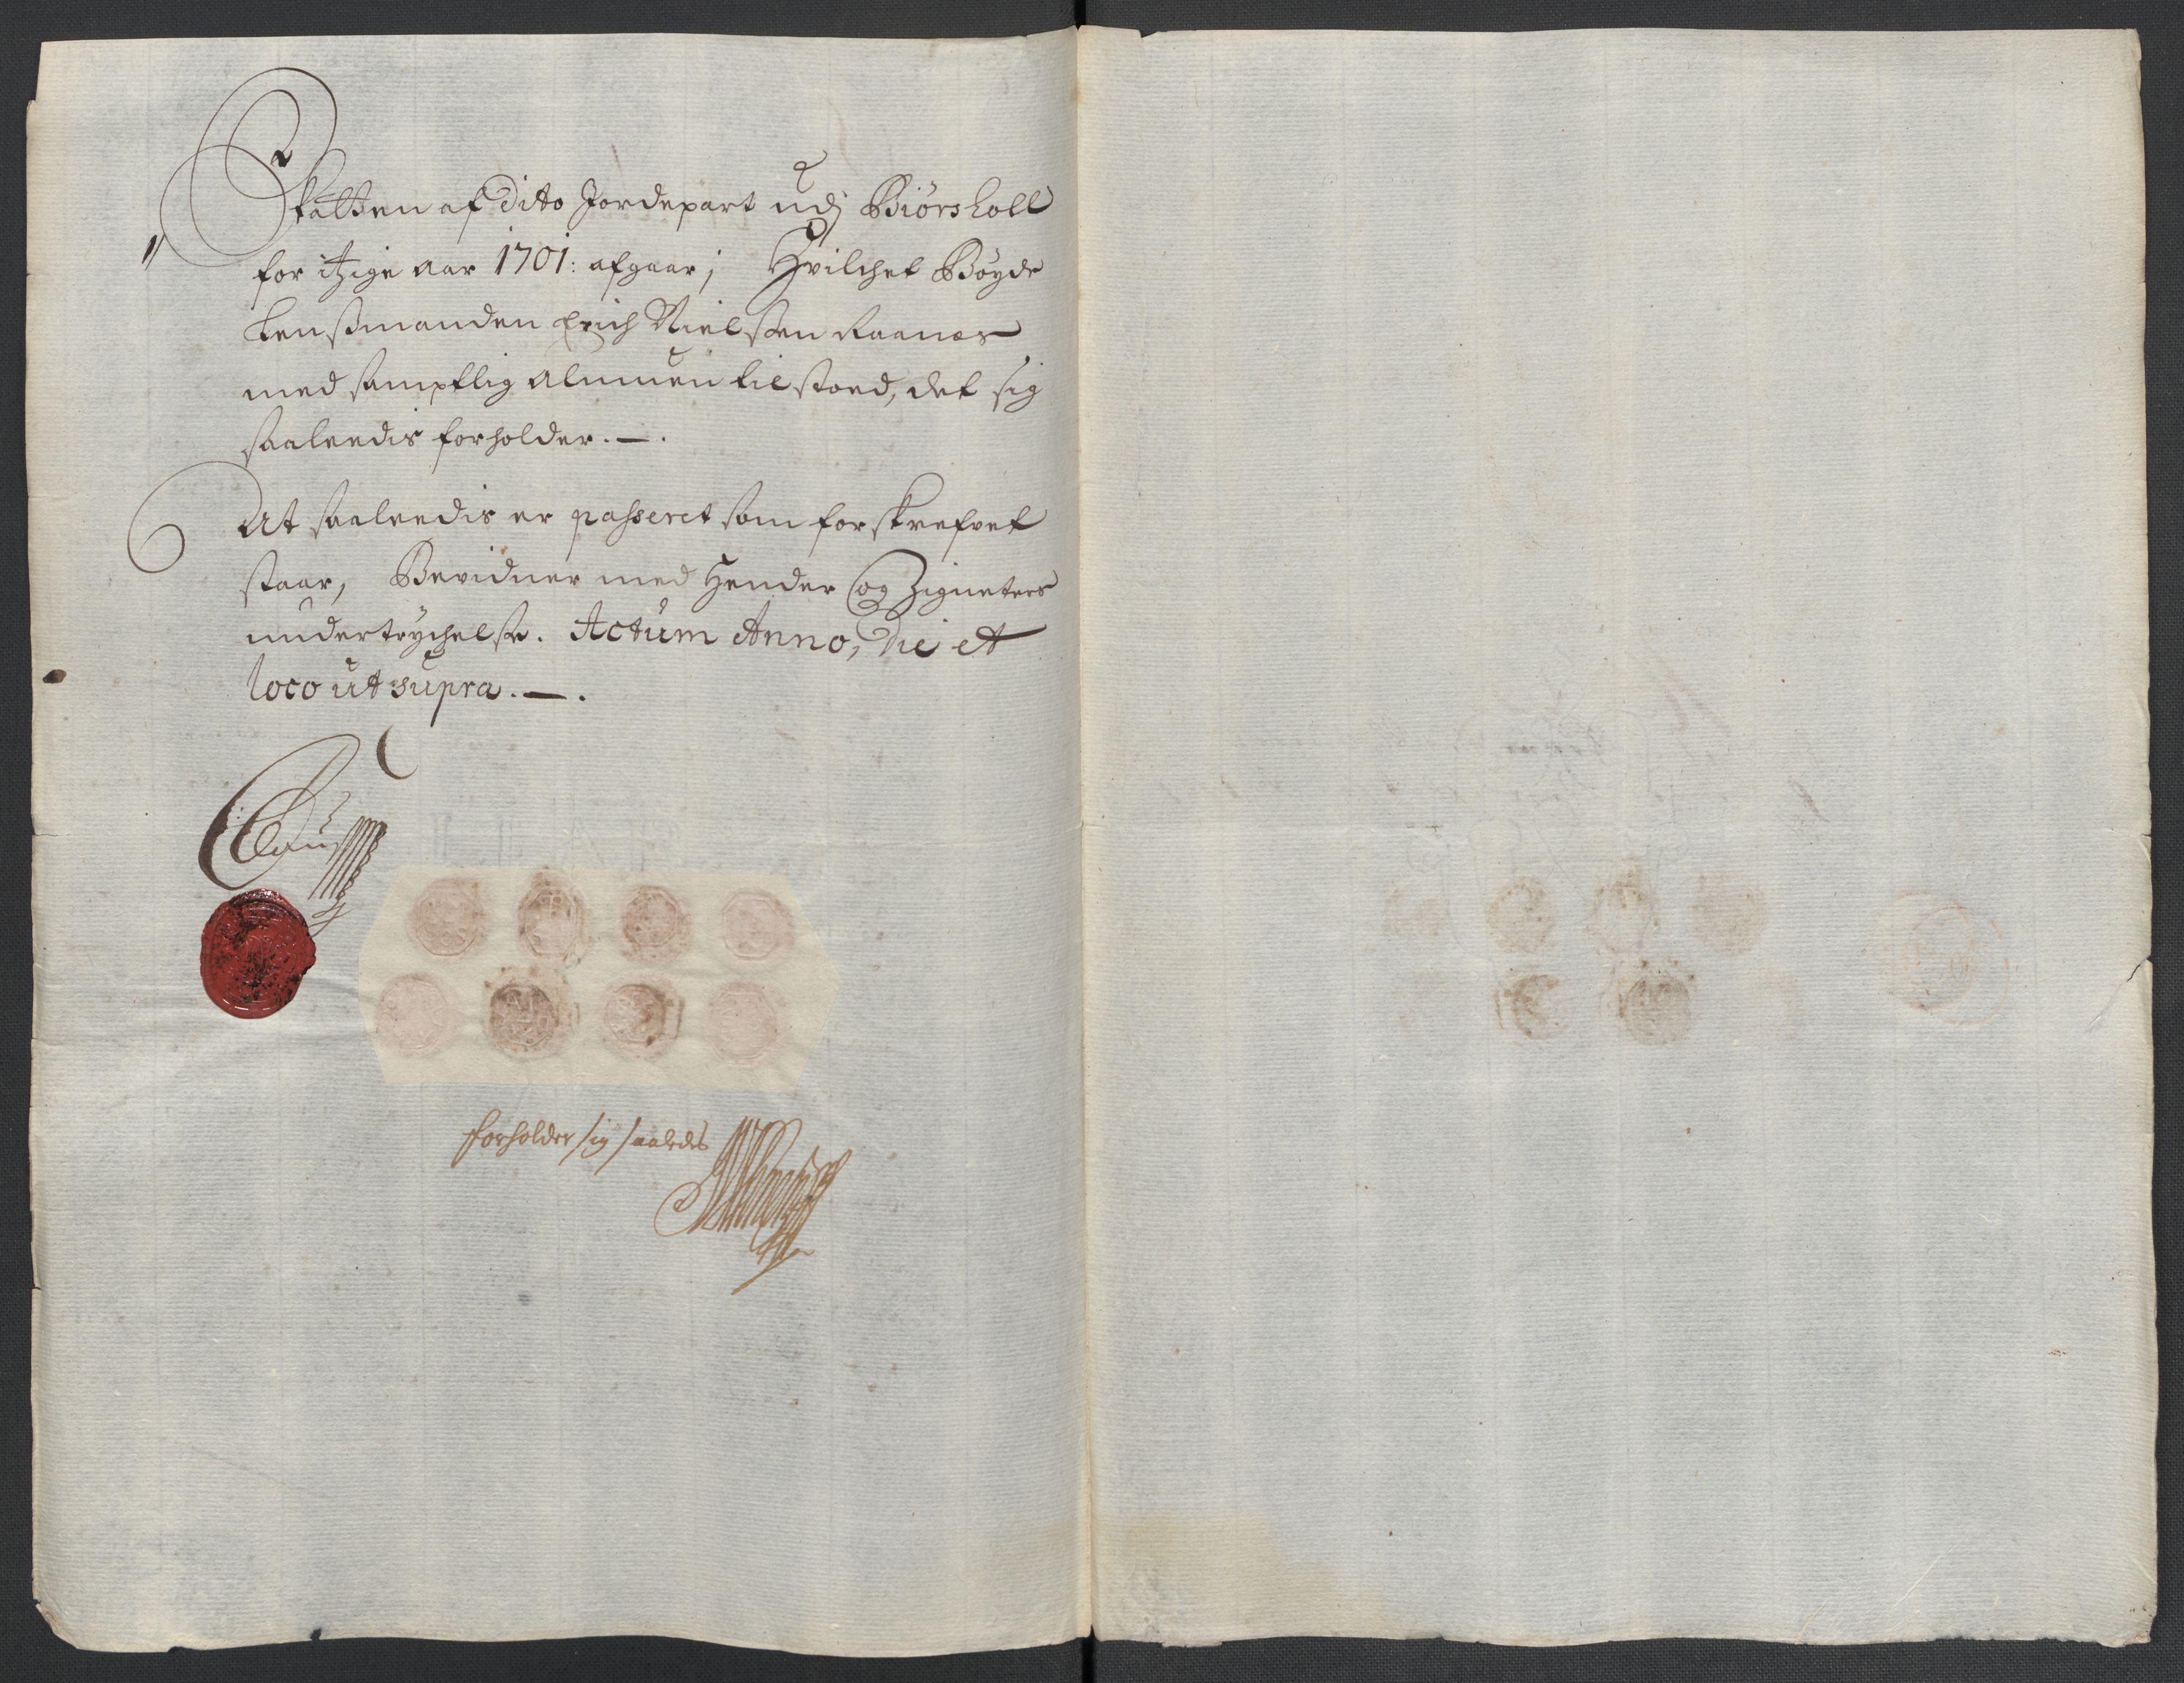 Skatten af Dito Jordepart udj Biørsholl
for itzige aar 1701: afgaar; Hvilchet Bøyde
Lenßmanden Erich Nielsen Raanes
med samptlig almuen tilstoed, det sig
saaledis forholder.—.
At saaledis er passeret som forskrefvet
staar, Bevidner med Hender og Zigneters
undertrychelse. Actum Anno, Die et
loco ut supra.—.
forholder sig saaledes